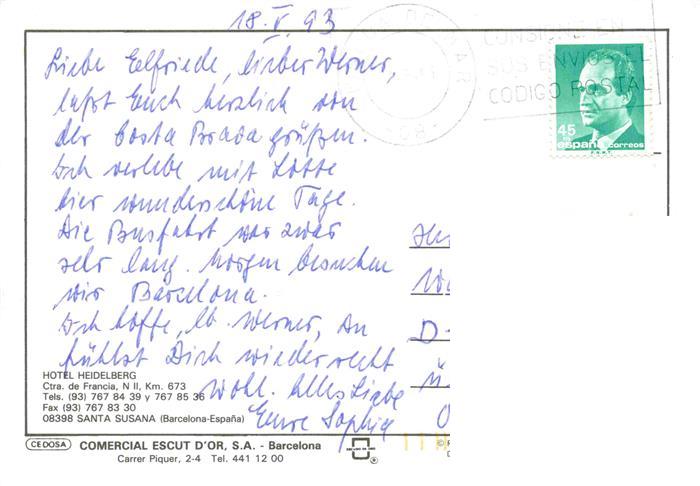 18.V.93
CONSIGNE EN
SUS ENVIOS EL
CODIGO POSTAL
Liebe Eelfriede, lieber Werner,
laßt Euch herzlich von
der Costa Brava grüßen.
Ich verlebe mit Lotte
hier wunderschöne Tage.
Die Busfahrt war zwar
sehr lang. Morgen besuchen
wir Barcelona.
Ich hoffe, lb. Werner, Du
fühlst Dich wieder recht
wohl. Alles Liebe
Eure Sophie
45
españa correos
F.N.M.T.
D-
HOTEL HEIDELBERG
Ctra. de Francia, N II, Km. 673
Tels. (93) 767 84 39 y 767 85 36
Fax (93) 767 83 30
08398 SANTA SUSANA (Barcelona-España)
CEDOSA
COMERCIAL ESCUT D'OR, S.A. - Barcelona
Carrer Piquer, 2-4 Tel. 441 12 00